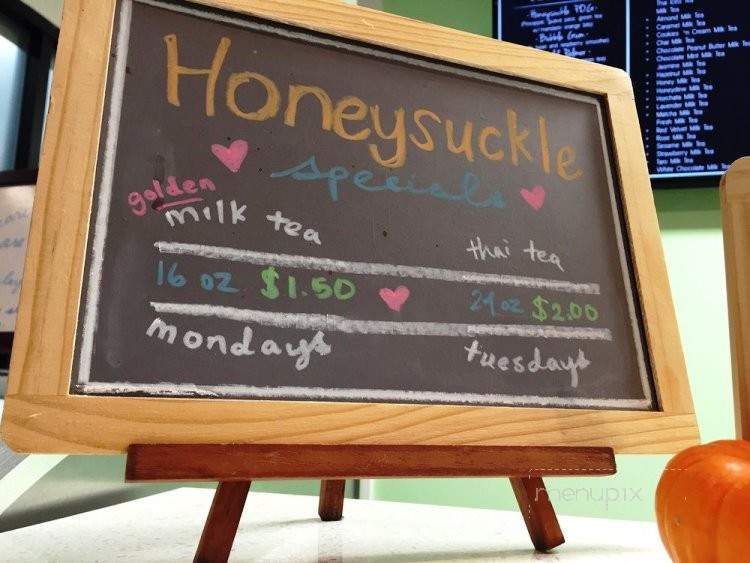 Honeysuckle
specials
golden
milk tea
thai tea
16 oz $1.50
24 oz $2.00
mondays
tuesdays
Honeysuckle POG
Milk Tea
Almond Milk Tea
Caramel Milk Tea
Cookies 'n Cream Milk Tea
Chai Milk Tea
Chocolate Peanut Butter Milk Tea
Chocolate Mint Milk Tea
Jasmine Milk Tea
Hazelnut Milk Tea
Honey Milk Tea
Honeydew Milk Tea
Horchata Milk Tea
Lavender Milk Tea
Matcha Milk Tea
Fresh Milk Tea
Red Velvet Milk Tea
Rose Milk Tea
Sesame Milk Tea
Strawberry Milk Tea
Taro Milk Tea
White Chocolate Milk Tea
menupix